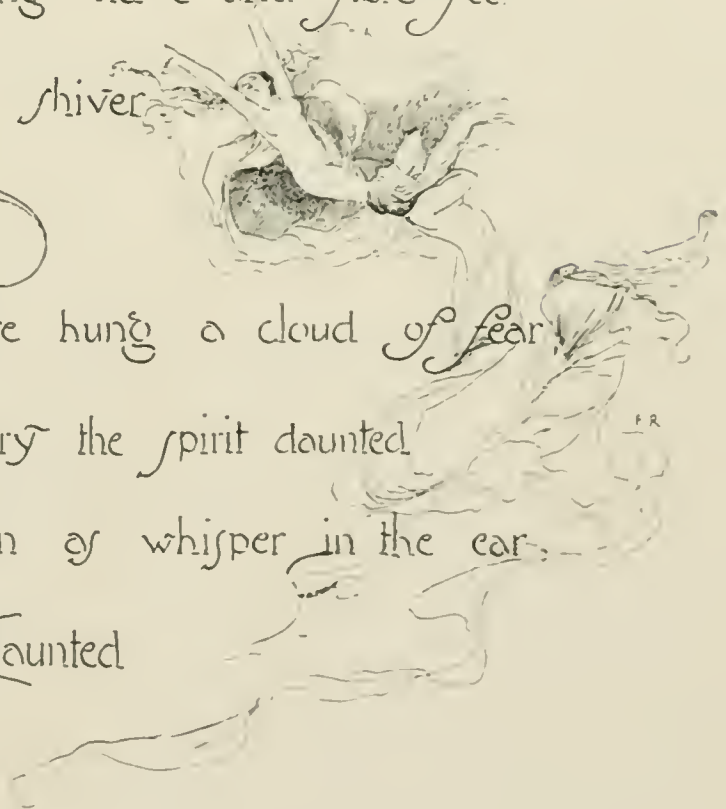 shiver
hung a cloud of fear
the spirit daunted
as whisper in the ear
aunted
F R